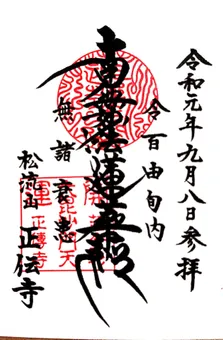 令和元年九月八日参拝
令百由旬内
南無妙法蓮華経
無諸衰患
松流山 正伝寺
正傳寺